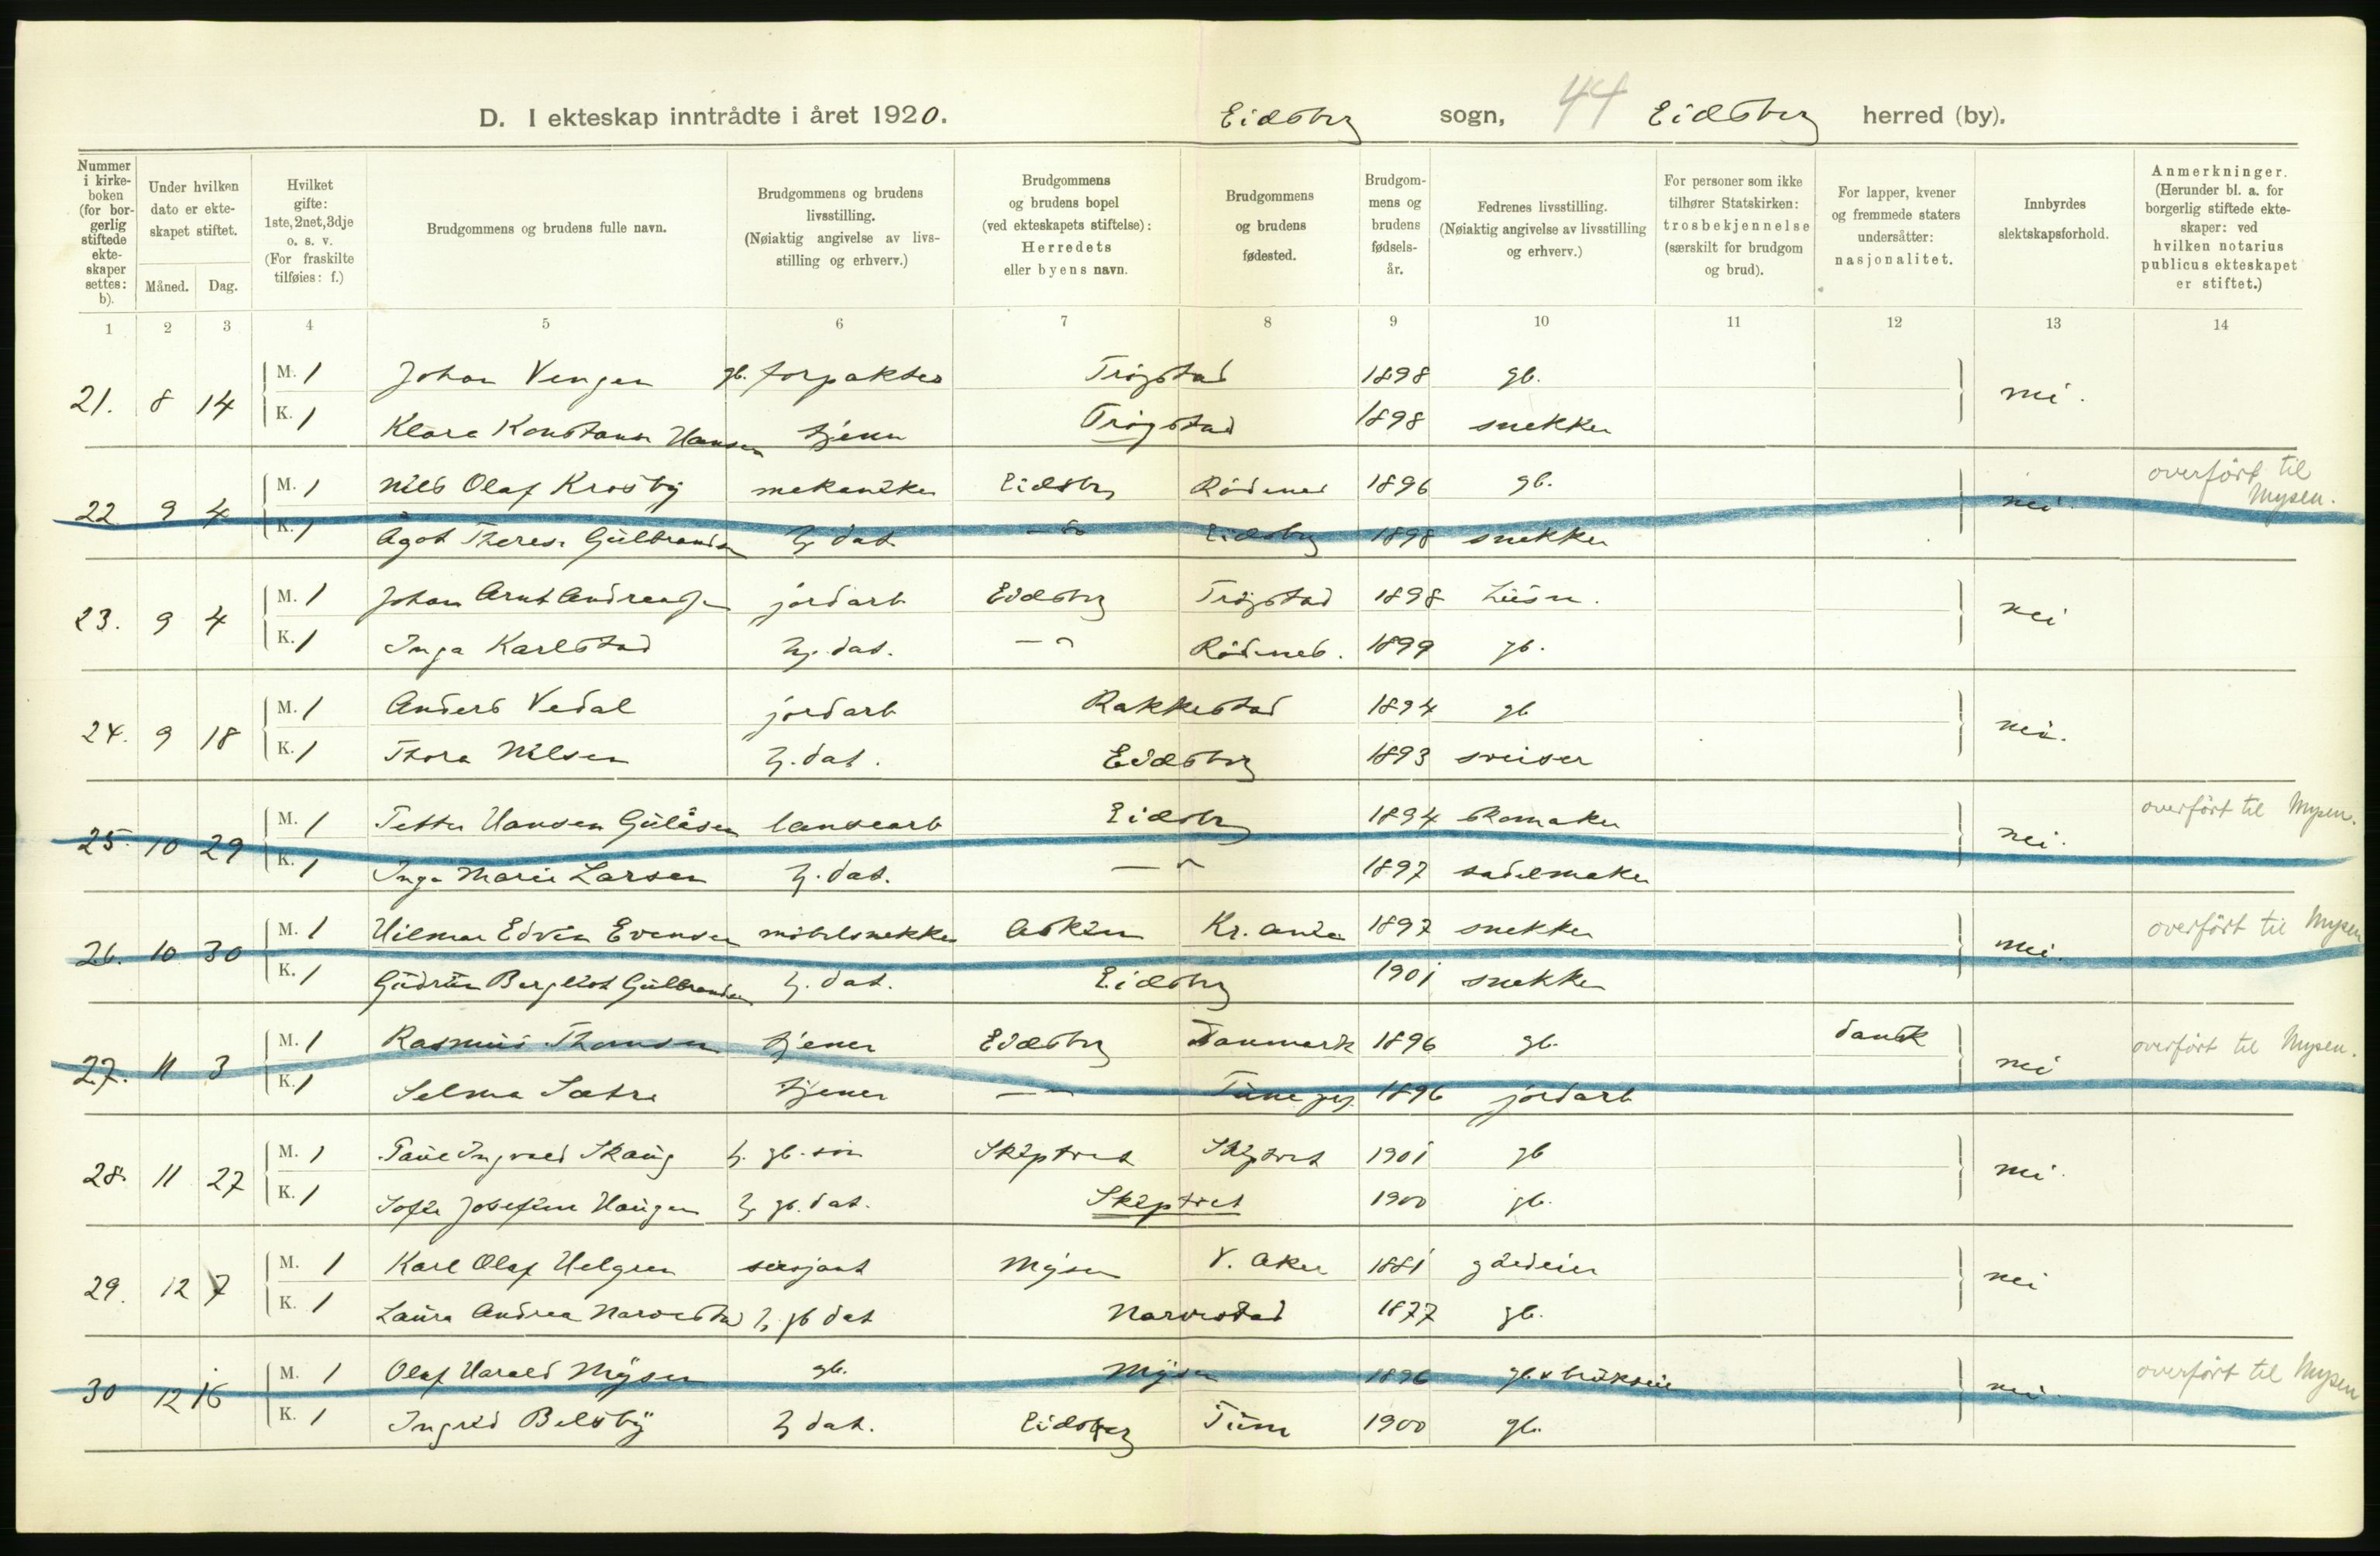 D. I ekteskap inntrådte i året 1920. Eidsberg sogn, 44 Eidsberg herred (by).
Nummer i kirke- boken (for bor- gerlig stiftede ekte- skaper settes: b).
Under hvilken dato er ekte- skapet stiftet.
Måned. Dag.
Hvilket gifte: 1ste, 2net, 3dje o. s. v. (For fraskilte tilføies: f.)
Brudgommens og brudens fulle navn.
Brudgommens og brudens livsstilling. (Nøiaktig angivelse av livs- stilling og erhverv.)
Brudgommens og brudens bopel (ved ekteskapets stiftelse): Herredets eller byens navn.
Brudgommens og brudens fødested.
Brudgom- mens og brudens fødsels- år.
Fedrenes livsstilling. (Nøiaktig angivelse av livsstilling og erhverv.)
For personer som ikke tilhører Statskirken: trosbekjennelse (særskilt for brudgom og brud).
For lapper, kvener og fremmede staters undersåtter: nasjonalitet.
Innbyrdes slektskapsforhold.
Anmerkninger. (Herunder bl. a. for borgerlig stiftede ekte- skaper: ved hvilken notarius publicus ekteskapet er stiftet.)
1 2 3 4 5 6 7 8 9 10 11 12 13 14
21. 8 14 M. 1 Johan Vengen gb. forpakter Trøgstad 1898 gb. nei.
K. 1 Klara Konstanse Hansen tjener Trøgstad 1898 snekker
22 9 4 M. 1 Nils Olaf Krosby mekaniker Eidsberg Rødenes 1896 gb. nei. overført til Mysen.
K. 1 Ågot Therese Gulbrandsen hj. dat. — Eidsberg 1898 snekker
23. 9 4 M. 1 Johan Arnt Andreassen jordarb Eidsberg Trøgstad 1898 Husm. nei
K. 1 Inga Karlstad hj. dat. — Rødenes. 1899 gb.
24. 9 18 M. 1 Anders Vedal jordarb Rakkestad 1894 gb nei.
K. 1 Thora Nilsen hj. dat. Eidsberg 1893 sveiser
25. 10 29 M. 1 Petter Hansen Gulåsen Eidsberg 1894 skomaker nei. overført til Mysen.
K. 1 Inga Marie Larsen hj. dat. — 1897 sadelmaker
26. 10 30 M. 1 Hilmar Edvin Evensen møbelsnekker Askim Kr. ania 1897 snekker nei. overført til Mysen
K. 1 Gudrun Bergliot Gulbrandsen hj. dat. Eidsberg 1901 snekker
27. 11 3 M. 1 Rasmus Thomsen tjener Eidsberg Danmark 1896 gb. dansk nei overført til Mysen.
K. 1 Selma Sætre tjener — Tune 1896 jordarb
28. 11 27 M. 1 Paul Ingvald Skaug hj. gb. søn Skiptvet Skiptvet 1901 gb nei.
K. 1 Sofie Josefine Haugen hj. gb. dat. Skiptvet 1900 gb.
29. 12 7 M. 1 Karl Olaf Helgren sersjant Mysen V. Aker 1881 gårdeier nei
K. 1 Laura Andrea Narvestad hj. gb dat Narvestad 1877 gb.
30 12 16 M. 1 Olaf Harald Mysen gb. Mysen 1896 gb. & brukseier nei. overført til Mysen
K. 1 Ingrid Belsby hj dat. Eidsberg Tune 1900 gb.